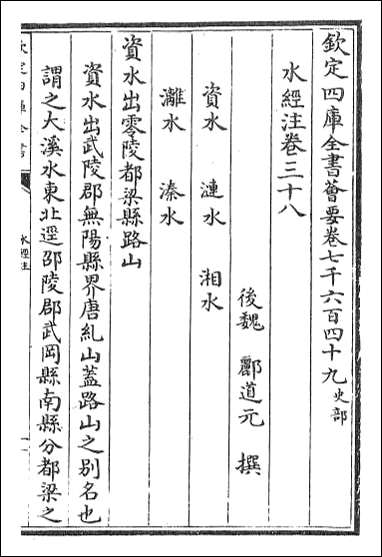 欽定四庫全書薈要卷七千六百四十九史部
水經注卷三十八
後魏 酈道元 撰
資水 漣水 湘水
灕水 溱水
資水出零陵都梁縣路山
資水出武陵郡無陽縣界唐糺山蓋路山之别名也
謂之大溪水東北逕邵陵郡武岡縣南縣分都梁之
欽定四庫全書
水經注